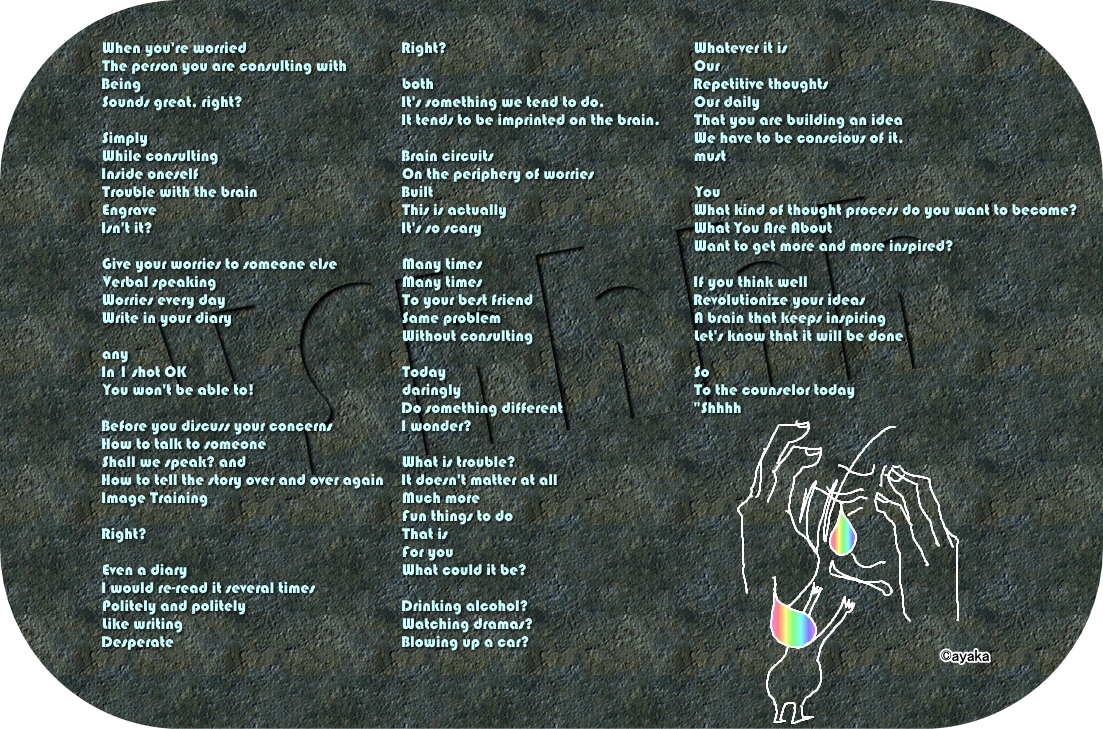 When you're worried
The person you are consulting with
Being
Sounds great, right?
Simply
While consulting
Inside oneself
Trouble with the brain
Engrave
Isn't it?
Give your worries to someone else
Verbal speaking
Worries every day
Write in your diary
any
In 1 shot OK
You won't be able to!
Before you discuss your concerns
How to talk to someone
Shall we speak? and
How to tell the story over and over again
Image Training
Right?
Even a diary
I would re-read it several times
Politely and politely
Like writing
Desperate
Right?
both
It's something we tend to do.
It tends to be imprinted on the brain.
Brain circuits
On the periphery of worries
Built
This is actually
It's so scary
Many times
Many times
To your best friend
Same problem
Without consulting
Today
daringly
Do something different
I wonder?
What is trouble?
It doesn't matter at all
Much more
Fun things to do
That is
For you
What could it be?
Drinking alcohol?
Watching dramas?
Blowing up a car?
Whatever it is
Our
Repetitive thoughts
Our daily
That you are building an idea
We have to be conscious of it.
must
You
What kind of thought process do you want to become?
What You Are About
Want to get more and more inspired?
If you think well
Revolutionize your ideas
A brain that keeps inspiring
Let's know that it will be done
So
To the counselor today
"Shhhh
©ayaka